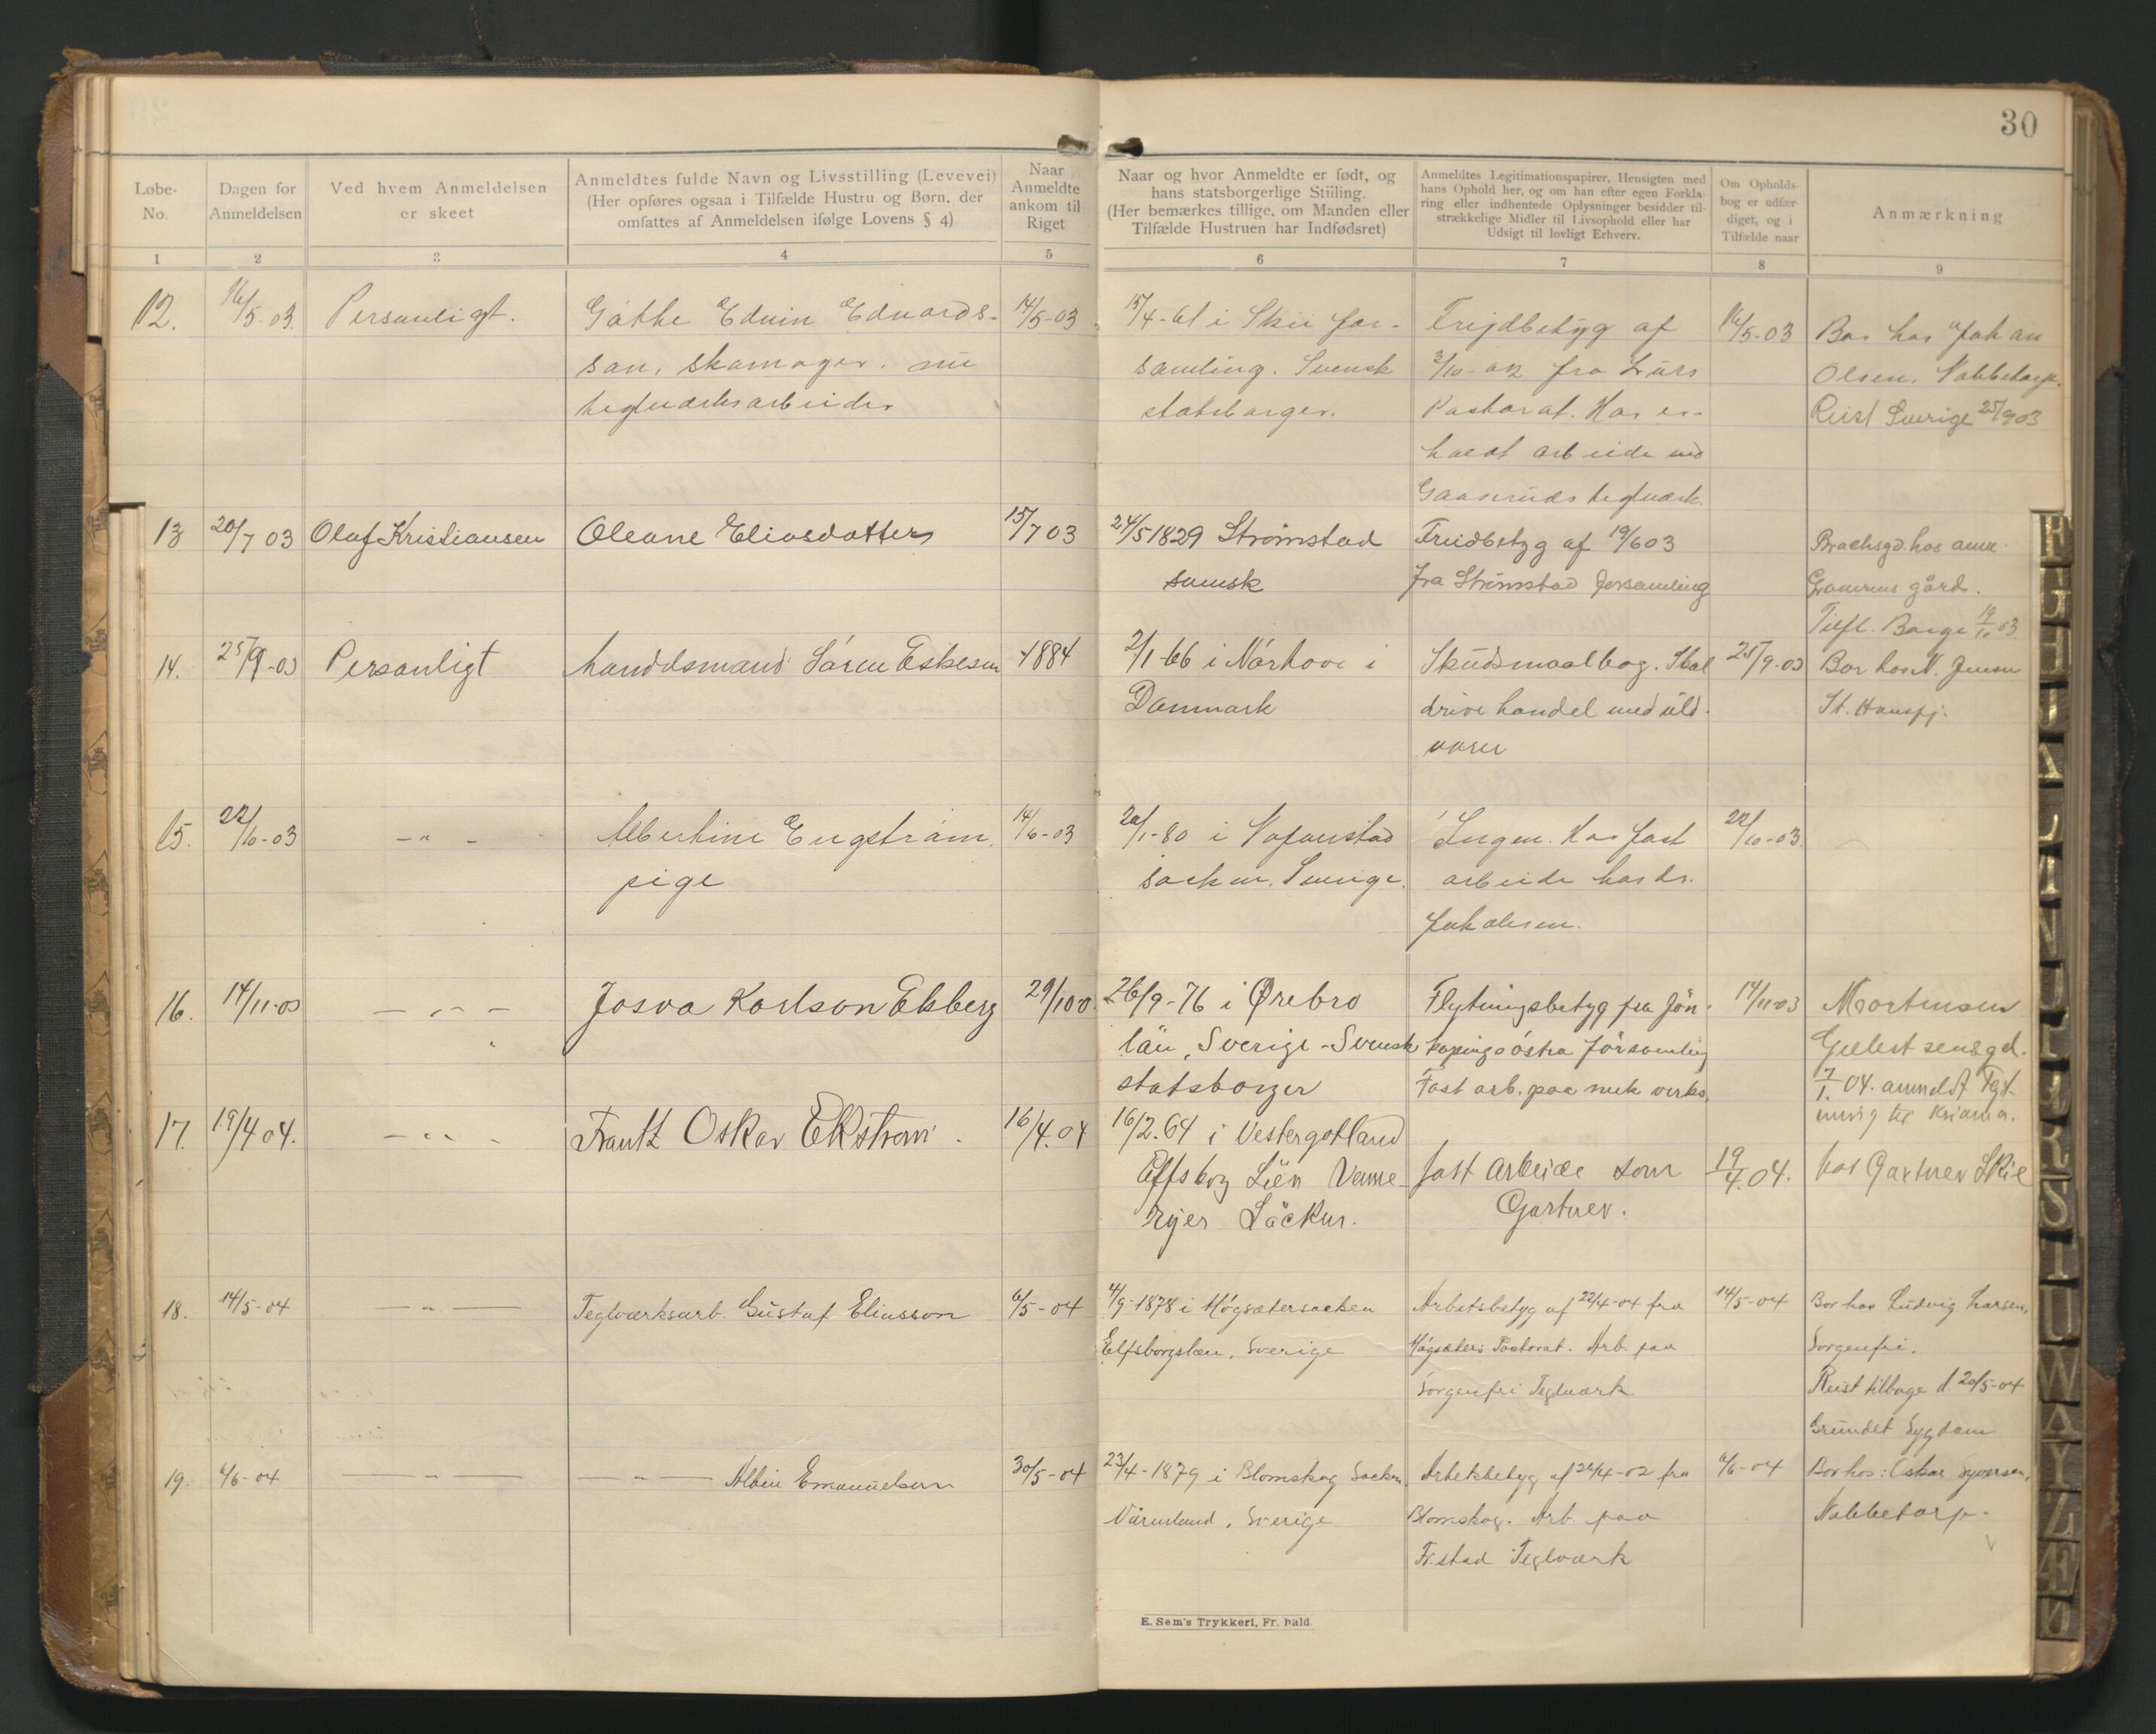 30
Løbe-No.
Dagen for Anmeldelsen
Ved hvem Anmeldelsen er skeet
Anmeldtes fulde Navn og Livsstilling (Levevei)
(Her opføres ogsaa i Tilfælde Hustru og Børn, der
omfattes af Anmeldelsen ifølge Lovens § 4)
Naar Anmeldte ankom til Riget
Naar og hvor Anmeldte er født, og
hans statsborgerlige Stiiling.
(Her bemærkes tillige, om Manden eller
Tilfælde Hustruen har Indfødsret)
Anmeldtes Legitimationspapirer, Hensigten med
hans Ophold her, og om han efter egen Forkla-
ring eller indhentede Oplysninger besidder til-
strækkelige Midler til Livsophold eller har
Udsigt til lovligt Erhverv.
Om Opholds-
bog er udfær-
diget, og i
Tilfælde naar
Anmærkning
1 2 3 4 5 6 7 8 9
12. 16/5-03. Personligt. Gøthe Edvin Edvards- 14/5-03 15/4-61 i Skee for- Frejdbetyg af 16/5-03 Bor hos Johan
san, skomager. nu samling. Svensk 3/10-02 fra Lurs Olsen. Nabbetorp.
teglverksarbeider statsborger. Pastorat. Har er- Reist Sverige 25/9 03
holdt arbeide ved
Gaaseruds teglverk.
13 20/7 03 Olaf Kristiansen Oleane Eliasdatter 15/7 03 24/5 1829 Strömstad Freidbetyg af 19/6 03
svensk fra Strömstad forsamling gård.
Borge 19/10 03
14. 25/9-03 Personligt handelsmand Søren Eskesen 1884 2/1-66 i Nørhove i Skudsmaalbog. Skal 25/9-03 Bor hos N. Jensen
Danmark drive handel med uld- St. Hansfj.
varer
15. 22/10-03 -"- Albertine Engstrøm. 14/6-03 20/1-80 i Ingen. Har fast 22/10-03.
pige socken. Sverige. arbeide hos
Jakobsen.
16. 14/11-03 -"- Josva Karlson Ekberg 29/10 0 26/9-76 i Ørebro Flytningsbetyg fra Jön- 14/11-03 Mortensen
län, Sverige - Svensk kopings östra församling
statsborger Fast arb. paa mek verks. 7/1.04. anmeldt
til Kr.ania.
17. 19/4 04. -"- Frantz Oskar Ekstrom. 16/4.04 16/2.64 i Vestergotland
Elfsborg Län fast Arbeide som 19/4.04. hos Gartner Skie
Gartner.
18. 14/5-04 -"- Teglværksarb. Gustaf Eliasson 6/5-04 4/9-1878 i Högsætersocken Arbetsbetyg af 22/4-04 fra 14/5-04 Bor hos Ludvig Larsen,
Elfsborgslæn, Sverige Högsæters Pastorat. Arb. paa Sorgenfri.
Sorgenfri Teglværk Reist tilbage d. 20/5-04
Grundet Sygdom
19. 6/6-04 -"- -"- Albin Emanuelson 30/5-04 23/4-1879 i Blomskog Socken, Arbetsbetyg af 22/4-02 fra 6/6-04 Bor hos: Oskar Syversen,
Värmland, Sverige Blomskog. Arb. paa Nabbetorp.
Fr.stad Teglværk
E. Sem's Trykkeri, Fr. hald